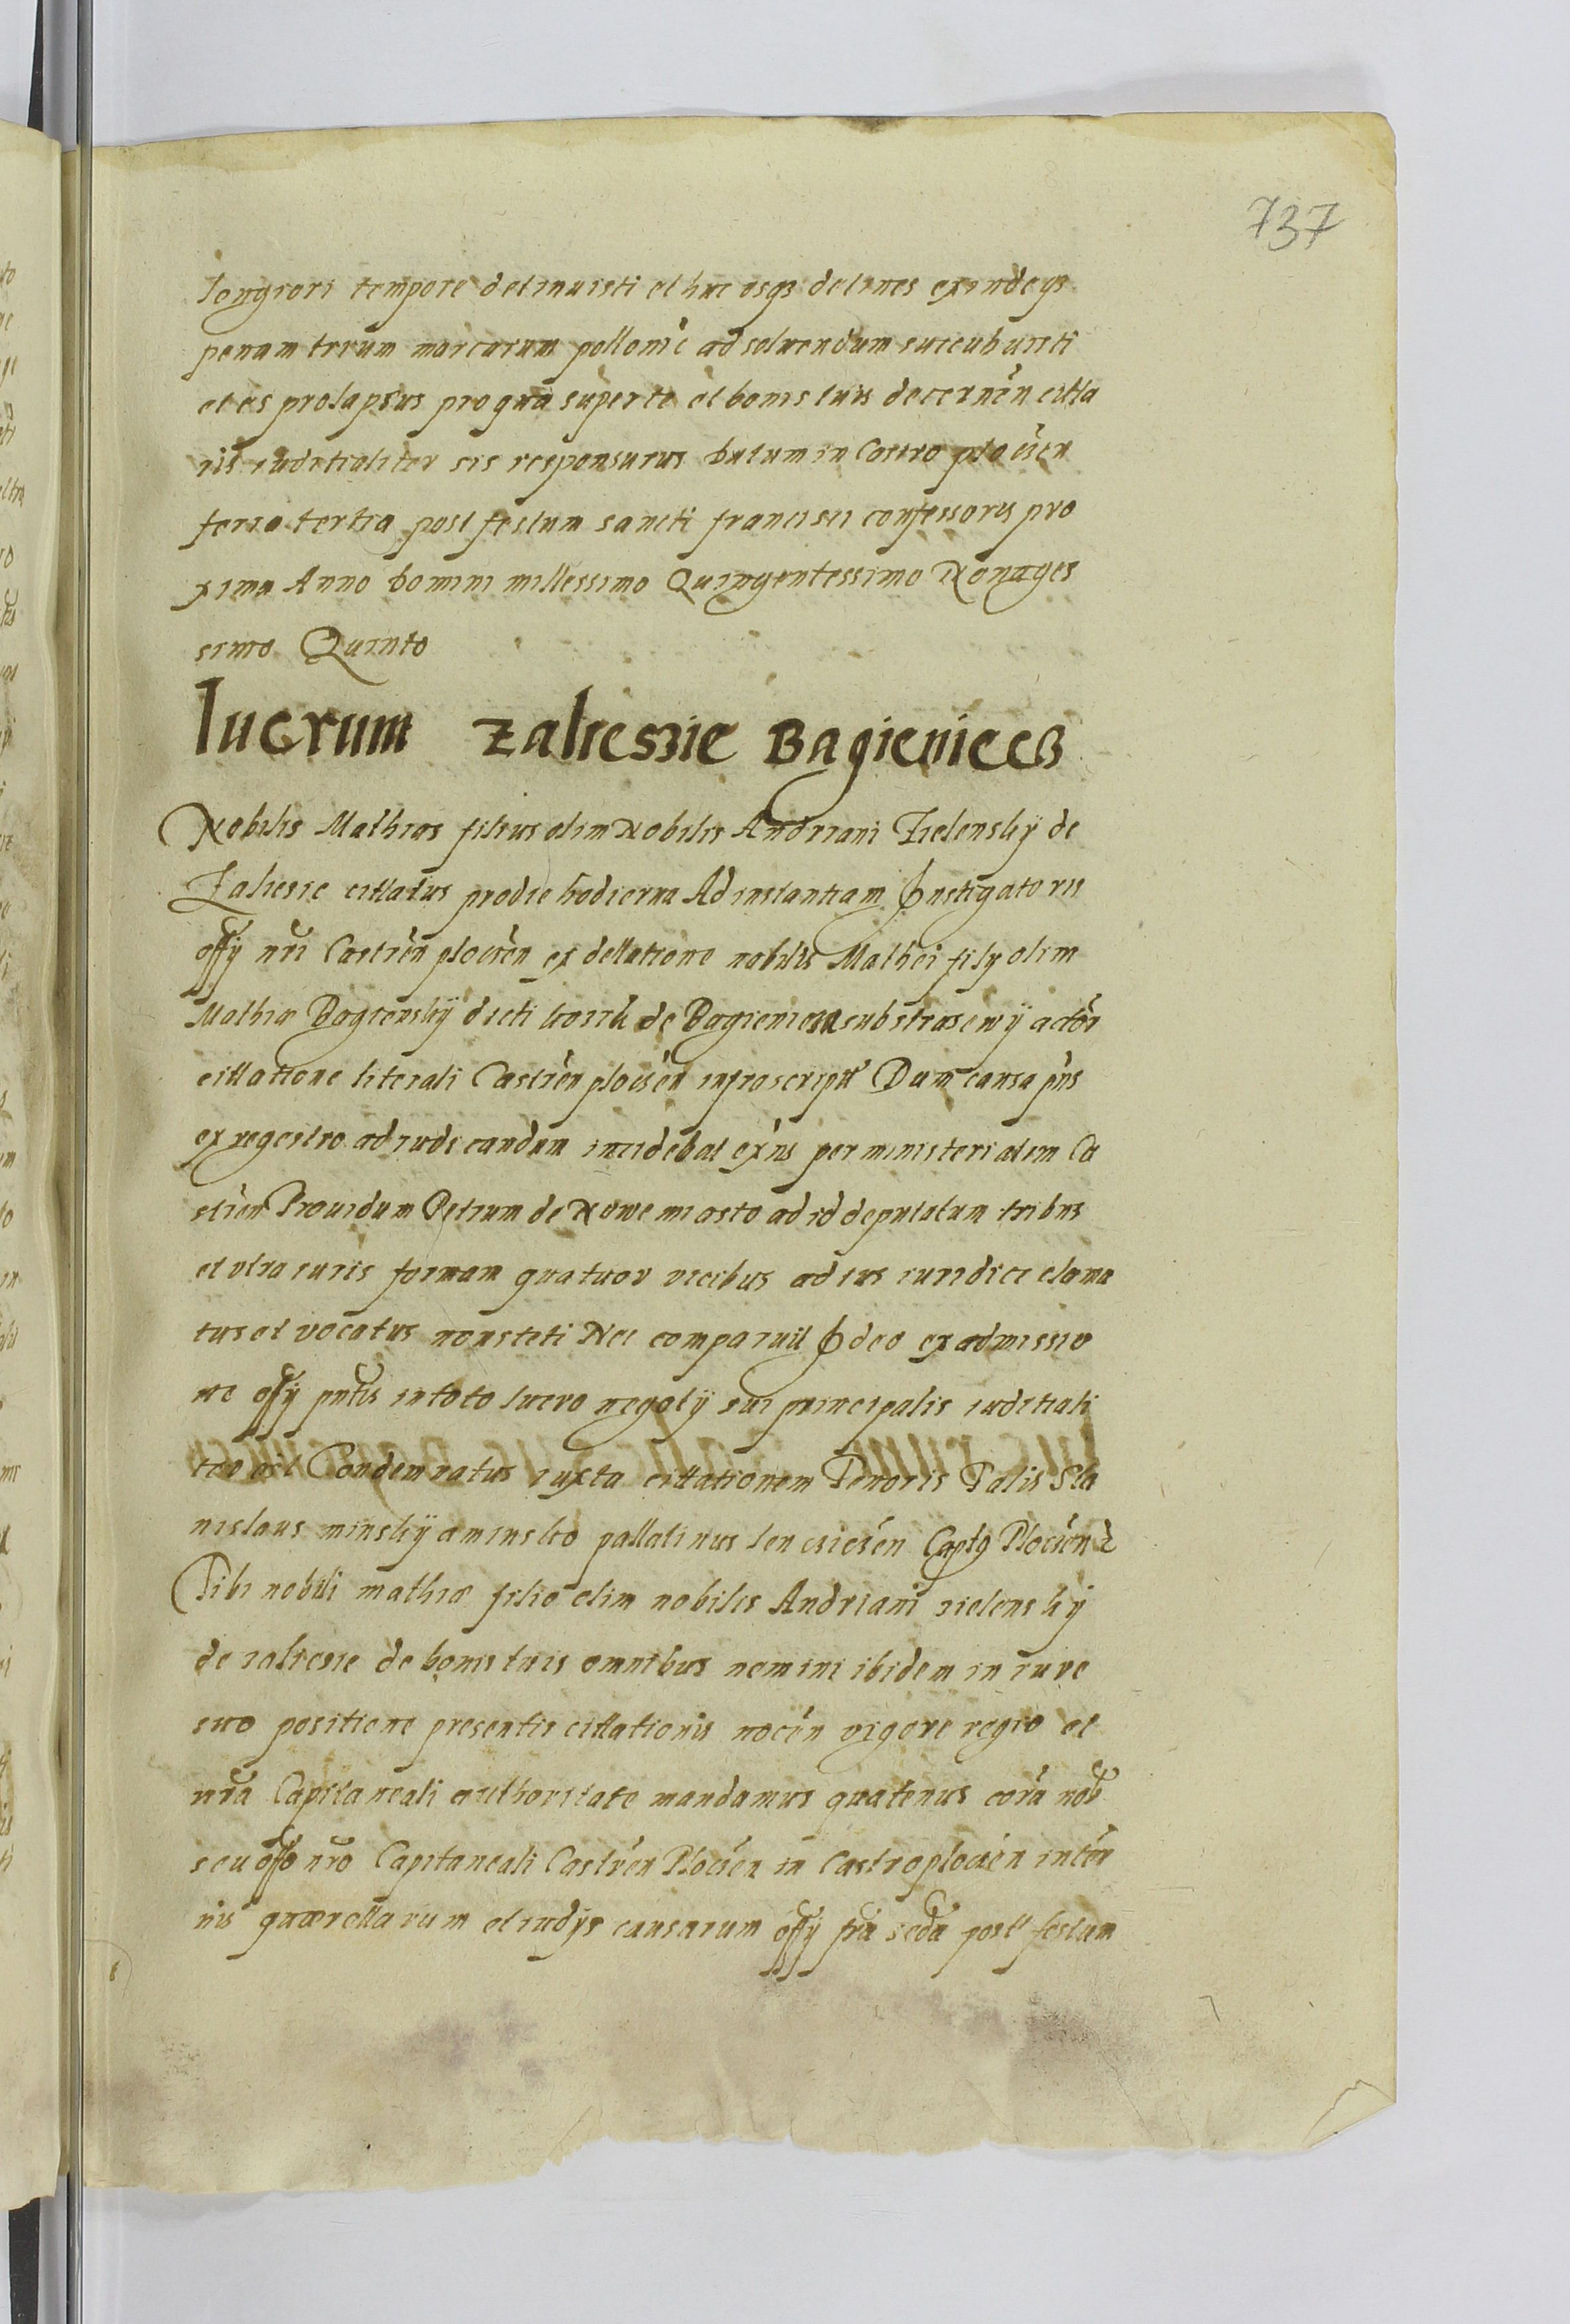 737
longiori tempore detinuisti et huc usq3 detines exindeq3
penam trium marcarum pollonic adsolvendum succubuisti
et es prolapsus pro qua super te et bonis tuis decernen citta
ris iuditialiter sis responsurus Datum in Castro plocien
feria tertia post festum sancti francisci confessoris pro
xima Anno Domini millessimo Quingentessimo Nonages
simo Quinto
lucrum zalieszie Bagieniecz
Nobilis Mathias filius olim Nobilis Andriani Zielenskÿ de
Zaliesie cittatus pro die hodierna Ad instantiam Instigatoris
offÿ nri Castren plocien ex dellatione nobilis Mathei filÿ olim
Mathiæ Bagienskÿ dicti de Bagienicze actor
cittatione literali Castren plocien infrascript Dum causa pns
ex regestro ad iudicandum incidebat exns per ministerialem Ca
strien Providum Petrum de Nowe miasto ad id deputatum tribus
et vltra iuris formam quatuor vicibus ad ius iuridice clama
tus et vocatus non stetit Nec comparuit Ideo ex admissio
ne offÿ pntis in toto lucro negotÿ sui principalis iuditiali
ter est Condemnatus iuxta cittationem Tenoris Talis Sta
nislaus minskÿ a minsko pallatinus lencicien Capts Plocien z
Tibi nobili mathiæ filio olim nobilis Andriani zielenskÿ
de zaliesie de bonis tuis omnibus nemini ibidem in iure
suo positione presentis cittationis nocen vigore regio et
nra Capitaneali authoritate mandamus quatenus cora nob
seu offo nro Capitaneali Castren Plocien in Castro plocien in ter
nis quærellarum et iudÿs causarum offÿ fra secda post festum